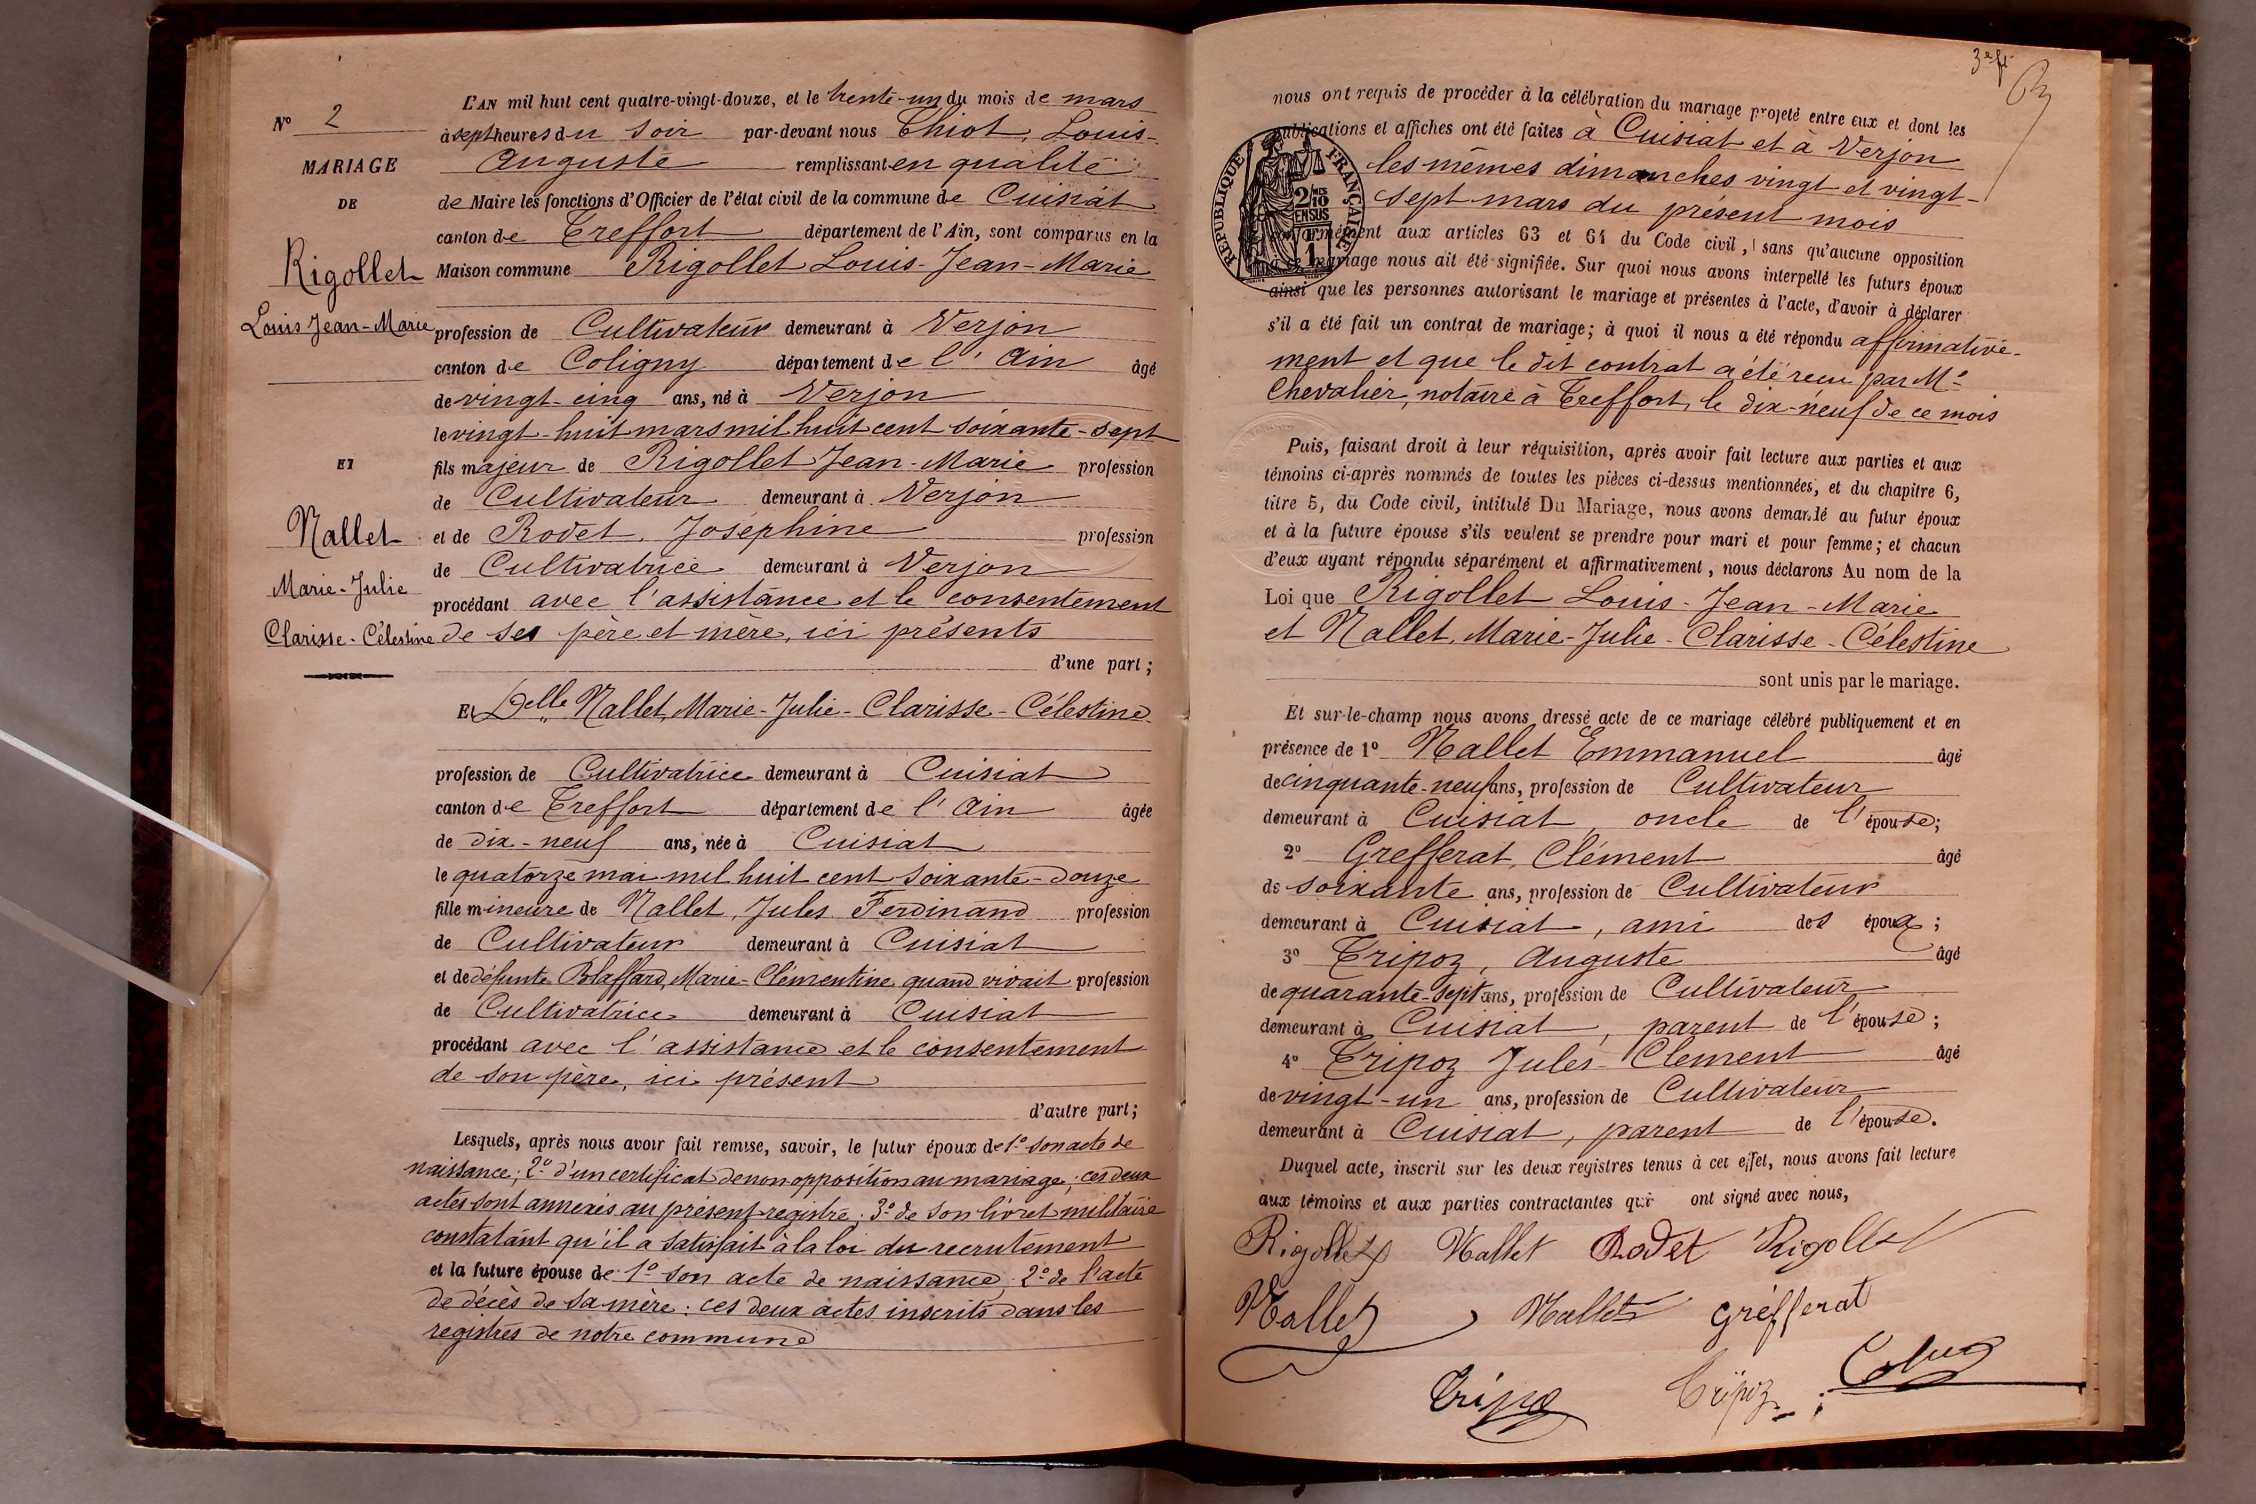 N° 2
MARIAGE
DE
Rigollet
Louis Jean-Marie
ET
Nallet
Marie-Julie
Clarisse-Célestine
L'AN mil huit cent quatre-vingt-douze, et le trente-un du mois de mars
à sept heures du soir par-devant nous Chiot, Louis-
Auguste remplissant en qualité
de Maire les fonctions d'Officier de l'état civil de la commune de Cuisiat
canton de Treffort département de l'Ain, sont comparus en la
Maison commune Rigollet Louis-Jean-Marie
profession de Cultivateur demeurant à Verjon
canton de Coligny département de l'Ain âgé
de vingt-cinq ans, né à Verjon
le vingt-huit mars mil huit cent soixante-sept
fils majeur de Rigollet Jean-Marie profession
de Cultivateur demeurant à Verjon
et de Rodet, Joséphine profession
de Cultivatrice demeurant à Verjon
procédant avec l'assistance et le consentement
de ses père et mère, ici présents
d'une part;
Et Delle Nallet, Marie-Julie-Clarisse-Célestine
profession de Cultivatrice demeurant à Cuisiat
canton de Treffort département de l'Ain âgée
de dix-neuf ans, née à Cuisiat
le quatorze mai mil huit cent soixante-douze
fille mineure de Nallet, Jules Ferdinand profession
de Cultivateur demeurant à Cuisiat
et de défunte Blaffard, Marie-Clémentine quand vivait profession
de Cultivatrice demeurant à Cuisiat
procédant avec l'assistance et le consentement
de son père, ici présent
d'autre part;
Lesquels, après nous avoir fait remise, savoir, le futur époux de 1° son acte de
naissance; 2° d'un certificat de non opposition au mariage; ces deux
actes sont annexés au présent registre; 3° de son livret militaire
constatant qu'il a satisfait à la loi du recrutement
et la future épouse de 1° son acte de naissance, 2° de l'acte
de décès de sa mère: ces deux actes inscrits dans les
registres de notre commune
3e ft
nous ont requis de procéder à la célébration du mariage projeté entre eux et dont les
publications et affiches ont été faites à Cuisiat et à Verjon
les mêmes dimanches vingt et vingt-
sept mars du présent mois
conformément aux articles 63 et 64 du Code civil, sans qu'aucune opposition
à ce mariage nous ait été signifiée. Sur quoi nous avons interpellé les futurs époux
ainsi que les personnes autorisant le mariage et présentes à l'acte, d'avoir à déclarer
s'il a été fait un contrat de mariage; à quoi il nous a été répondu affirmative-
ment et que le dit contrat a été reçu par Me
Chevalier, notaire à Treffort, le dix-neuf de ce mois
RÉPUBLIQUE FRANÇAISE
2/10
EN SUS
1
Puis, faisant droit à leur réquisition, après avoir fait lecture aux parties et aux
témoins ci-après nommés de toutes les pièces ci-dessus mentionnées, et du chapitre 6,
titre 5, du Code civil, intitulé Du Mariage, nous avons demandé au futur époux
et à la future épouse s'ils veulent se prendre pour mari et pour femme; et chacun
d'eux ayant répondu séparément et affirmativement, nous déclarons Au nom de la
Loi que Rigollet Louis-Jean-Marie
et Nallet, Marie-Julie-Clarisse-Célestine
sont unis par le mariage.
Et sur-le-champ nous avons dressé acte de ce mariage célébré publiquement et en
présence de 1° Nallet Emmanuel âgé
de cinquante-neuf ans, profession de Cultivateur
demeurant à Cuisiat, oncle de l'épouse;
2° Grefferat, Clément âgé
de soixante ans, profession de Cultivateur
demeurant à Cuisiat, ami des époux;
3° Tripoz, Auguste âgé
de quarante-sept ans, profession de Cultivateur
demeurant à Cuisiat, parent de l'épouse;
4° Tripoz Jules-Clément âgé
de vingt-un ans, profession de Cultivateur
demeurant à Cuisiat, parent de l'épouse.
Duquel acte, inscrit sur les deux registres tenus à cet effet, nous avons fait lecture
aux témoins et aux parties contractantes qui ont signé avec nous,
Rigollet Nallet Rodet Rigollet
Nallet Nallet Grefferat
Tripoz Tripoz